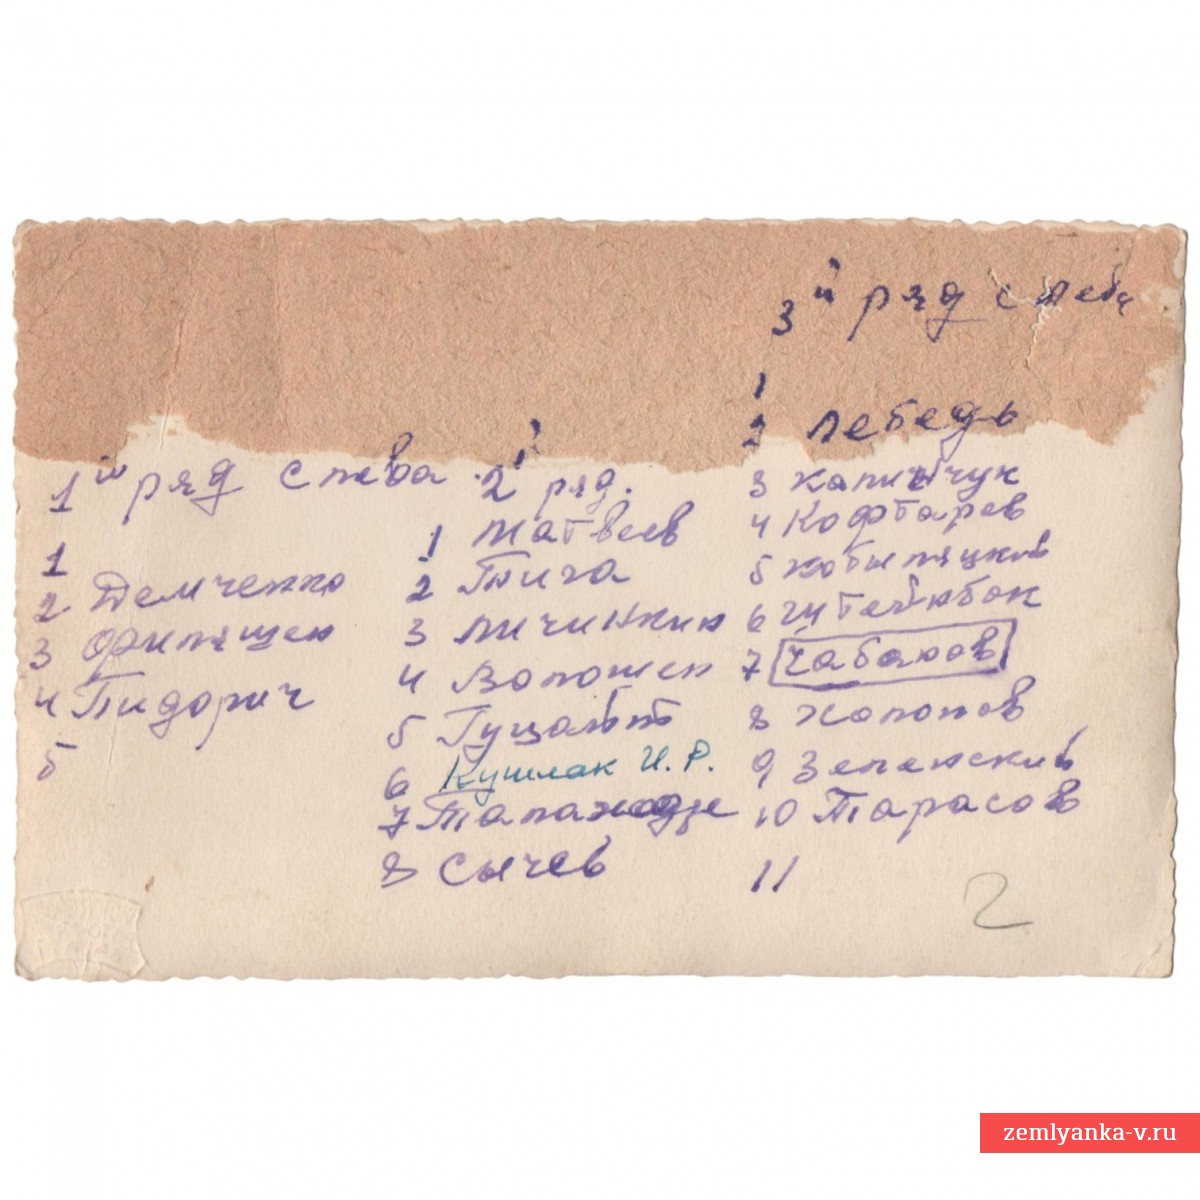 1й ряд слева
1
2 Демченко
3 Филищен
4 Пидорич
5
2й ряд.
1 Матвеев
2 Пига
3 Личинкин
4 Волошен
5 Гуцалит
6 Кушлак И.Р.
7
8 Сычев
3й ряд слева
1
2 Лебедь
3 Калинчук
4 Кофтарев
5 Кобыляцкий
6 Штейнбок
7 Чабанов
8 Холопов
9 Зеленский
10 Тарасов
11
2
zemlyanka-v.ru